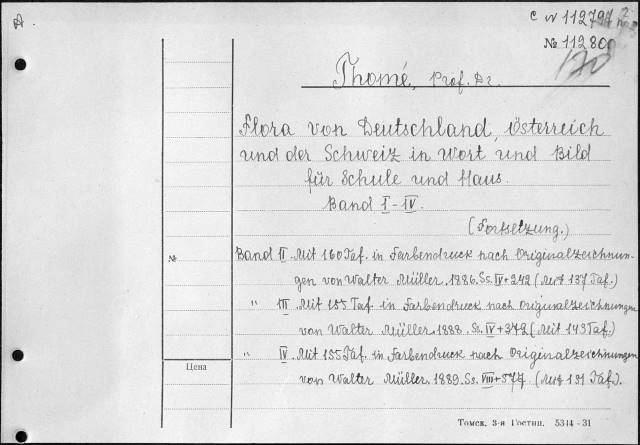 A
с № 112794
№ 112800
170
Thomé, Prof. Dr.
Flora von Deutschland, Österreich
und der Schweiz in Wort und Bild
für Schule und Haus.
Band I-IV.
(Fortsetzung.)
№ Band II. Mit 160 Taf. in Farbendruck nach Originalzeichnun-
gen von Walter Müller. 1886. Ss. IV+242 (Mit 137 Taf.)
" III. Mit 155 Taf. in Farbendruck nach Originalzeichnungen
von Walter Müller. 1888. Ss. IV+372 (Mit 143 Taf.)
" IV. Mit 155 Taf. in Farbendruck nach Originalzeichnungen
Цена
von Walter Müller. 1889. Ss. VIII+577 (Mit 151 Taf.).
Томск. 3-я Гостип. 5344-31